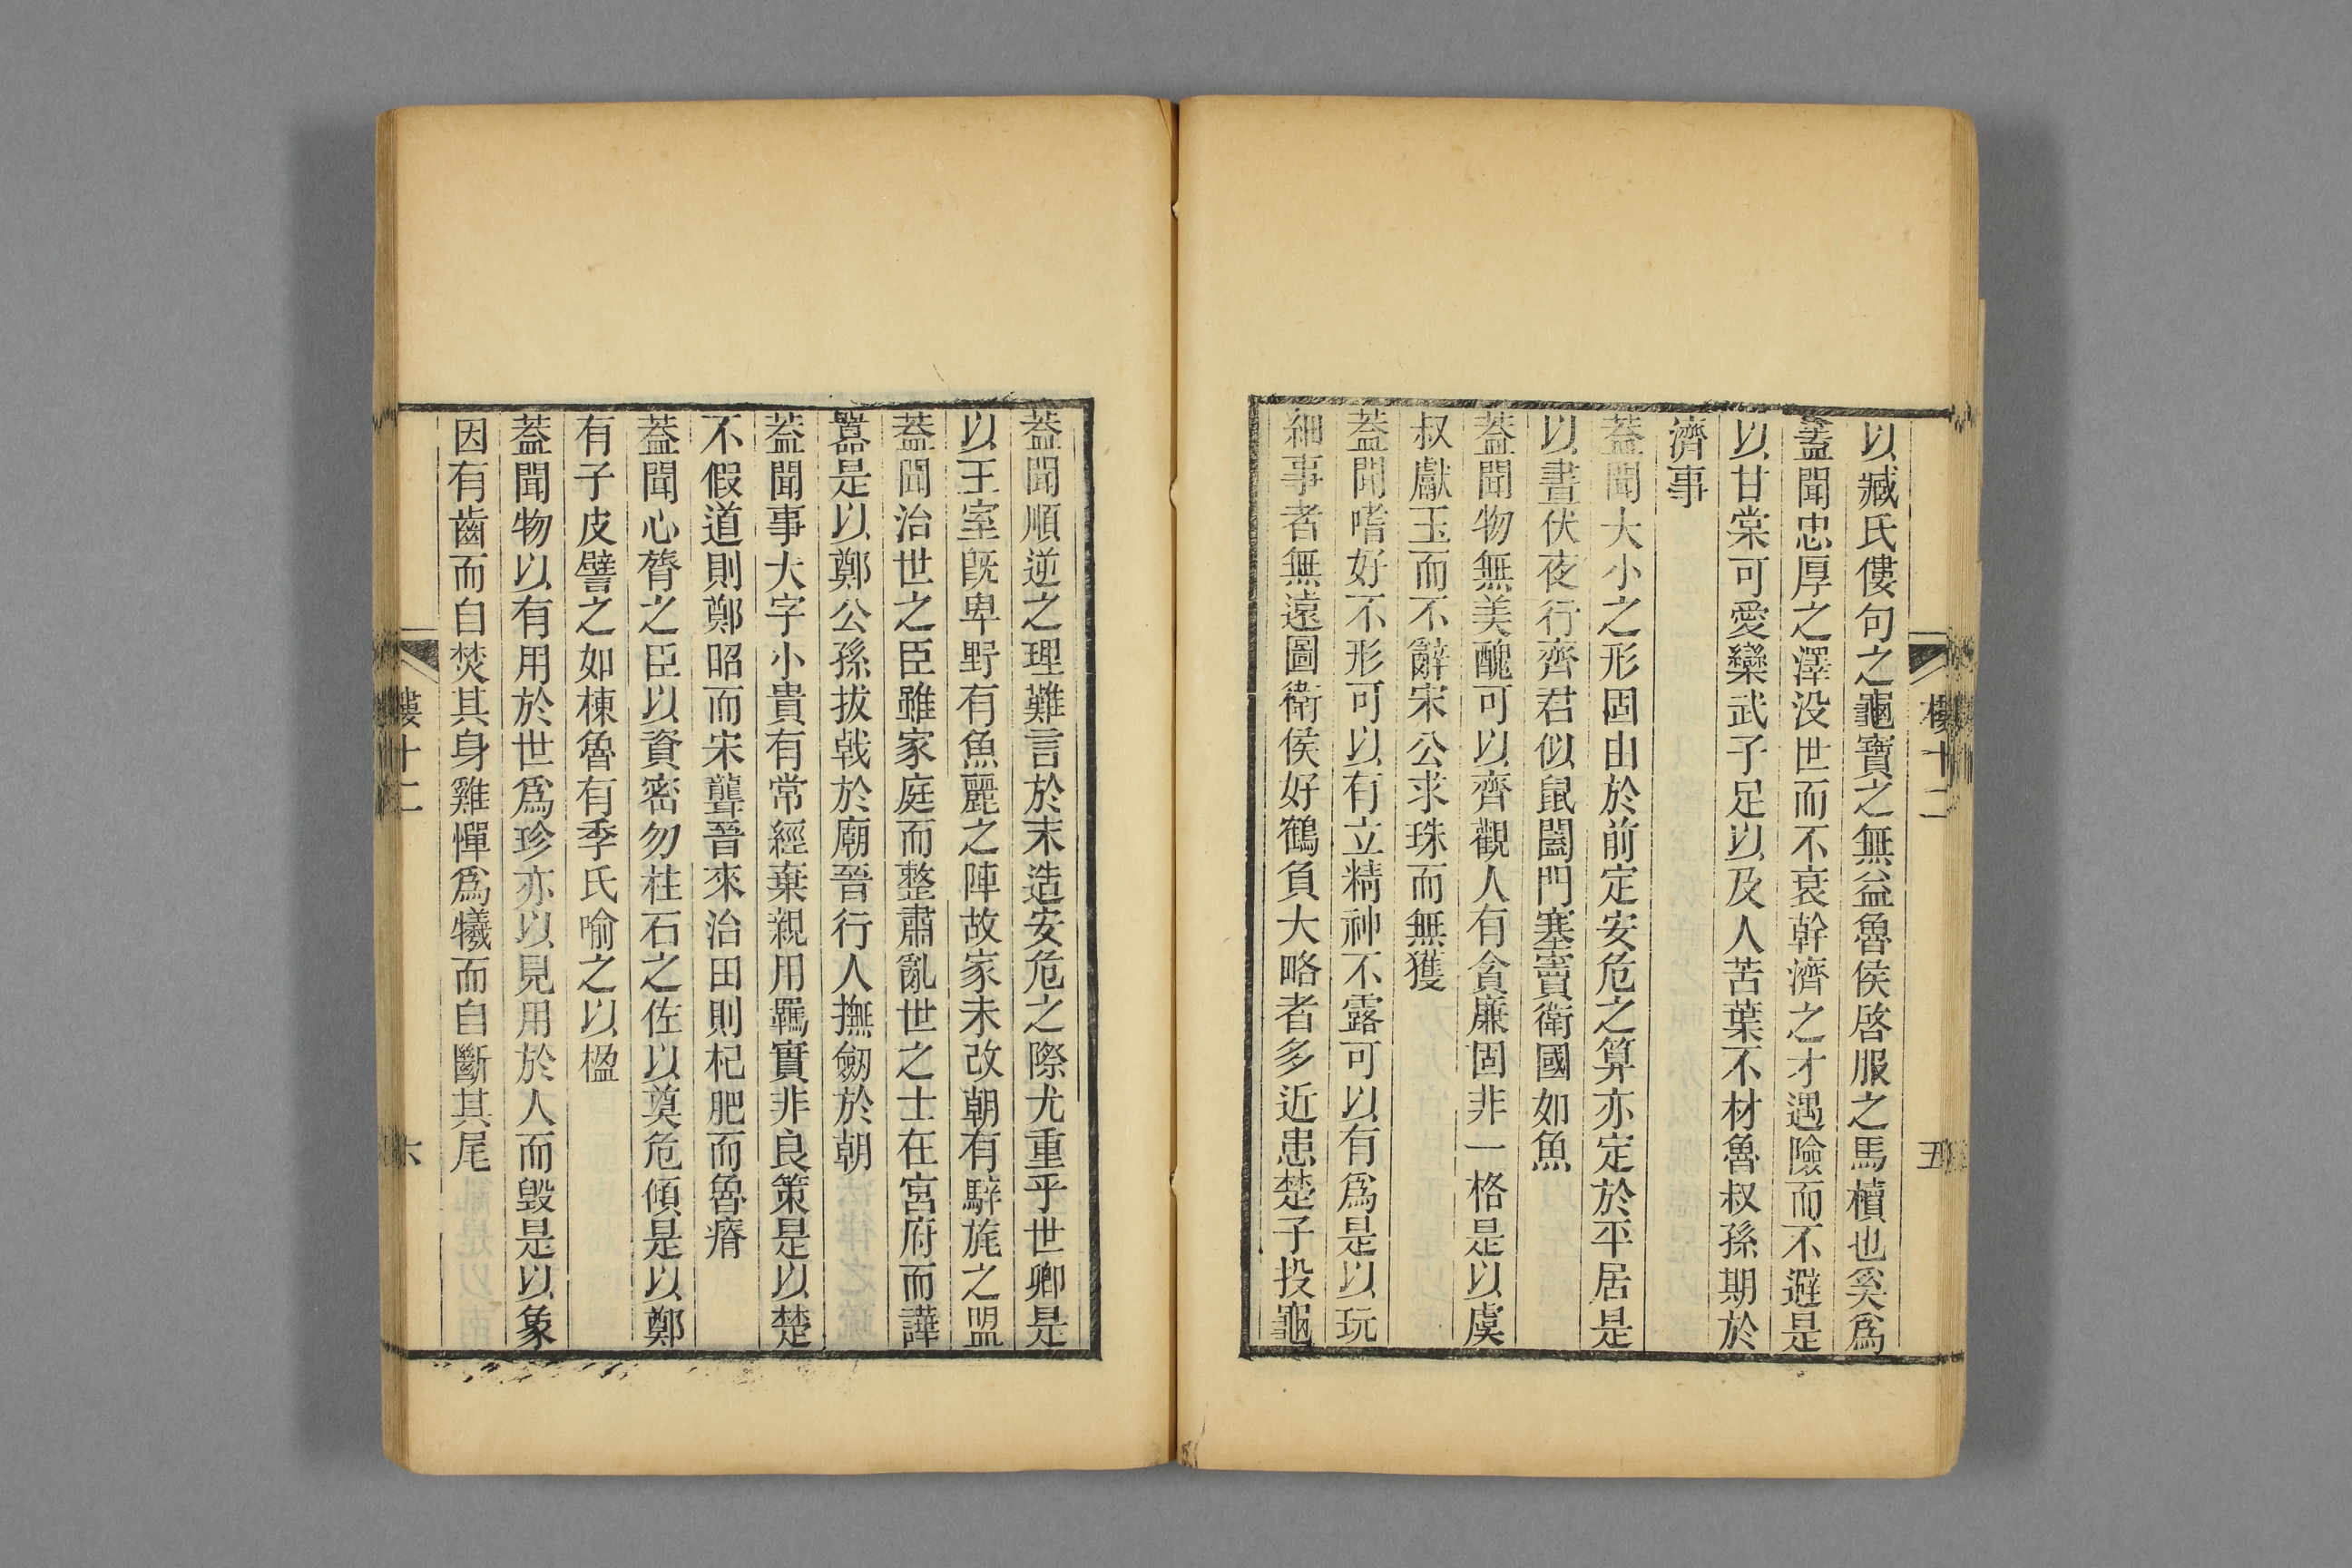 樓十二
五
以臧氏僂句之龜寶之無益魯侯啓服之馬櫝也奚爲
葢聞忠厚之澤没世而不衰幹濟之才遇險而不避是
以甘棠可愛欒武子足以及人苦葉不材魯叔孫期於
濟事
葢聞大小之形固由於前定安危之算亦定於平居是
以晝伏夜行齊君似鼠闔門塞竇衛國如魚
葢聞物無美醜可以齊觀人有貪廉固非一格是以虞
叔獻玉而不辭宋公求珠而無獲
葢聞嗜好不形可以有立精神不露可以有爲是以玩
細事者無遠圖衛侯好鶴負大略者多近患楚子投龜
葢聞順逆之理難言於末造安危之際尤重乎世卿是
以王室既卑野有魚麗之陣故家未改朝有騂旄之盟
葢聞治世之臣雖家庭而整肅亂世之士在宮府而譁
囂是以鄭公孫拔戟於廟晉行人撫劒於朝
葢聞事大字小貴有常經棄親用羈實非良策是以楚
不假道則鄭昭而宋聾晉來治田則杞肥而魯瘠
葢聞心膂之臣以資密勿柱石之佐以奠危傾是以鄭
有子皮譬之如棟魯有季氏喻之以楹
葢聞物以有用於世爲珍亦以見用於人而毀是以象
因有齒而自焚其身雞憚爲犧而自斷其尾
樓十二
六